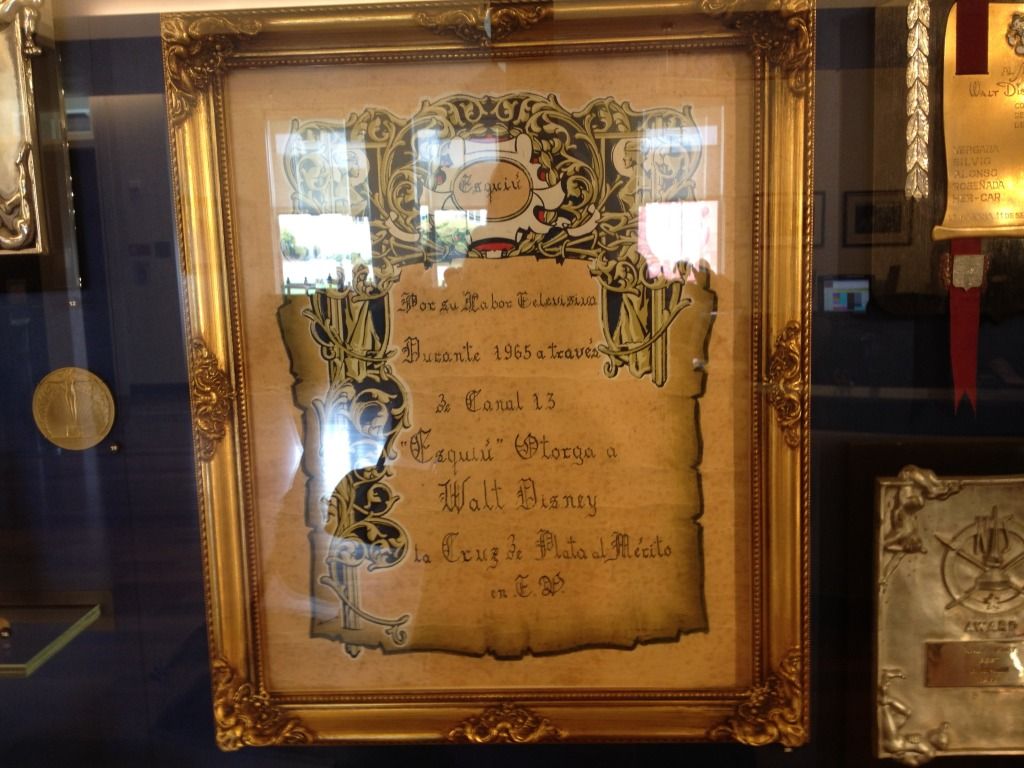 Esquiú
Por su Labor Televisiva
Durante 1965 a través
de Canal 13
"Esquiú" Otorga a
Walt Disney
la Cruz de Plata al Mérito
en T. V.
AL
WALT DIS
VERGARA
SILVIO
ALONSO
ROSEÑADA
HER-CAR
AWARD